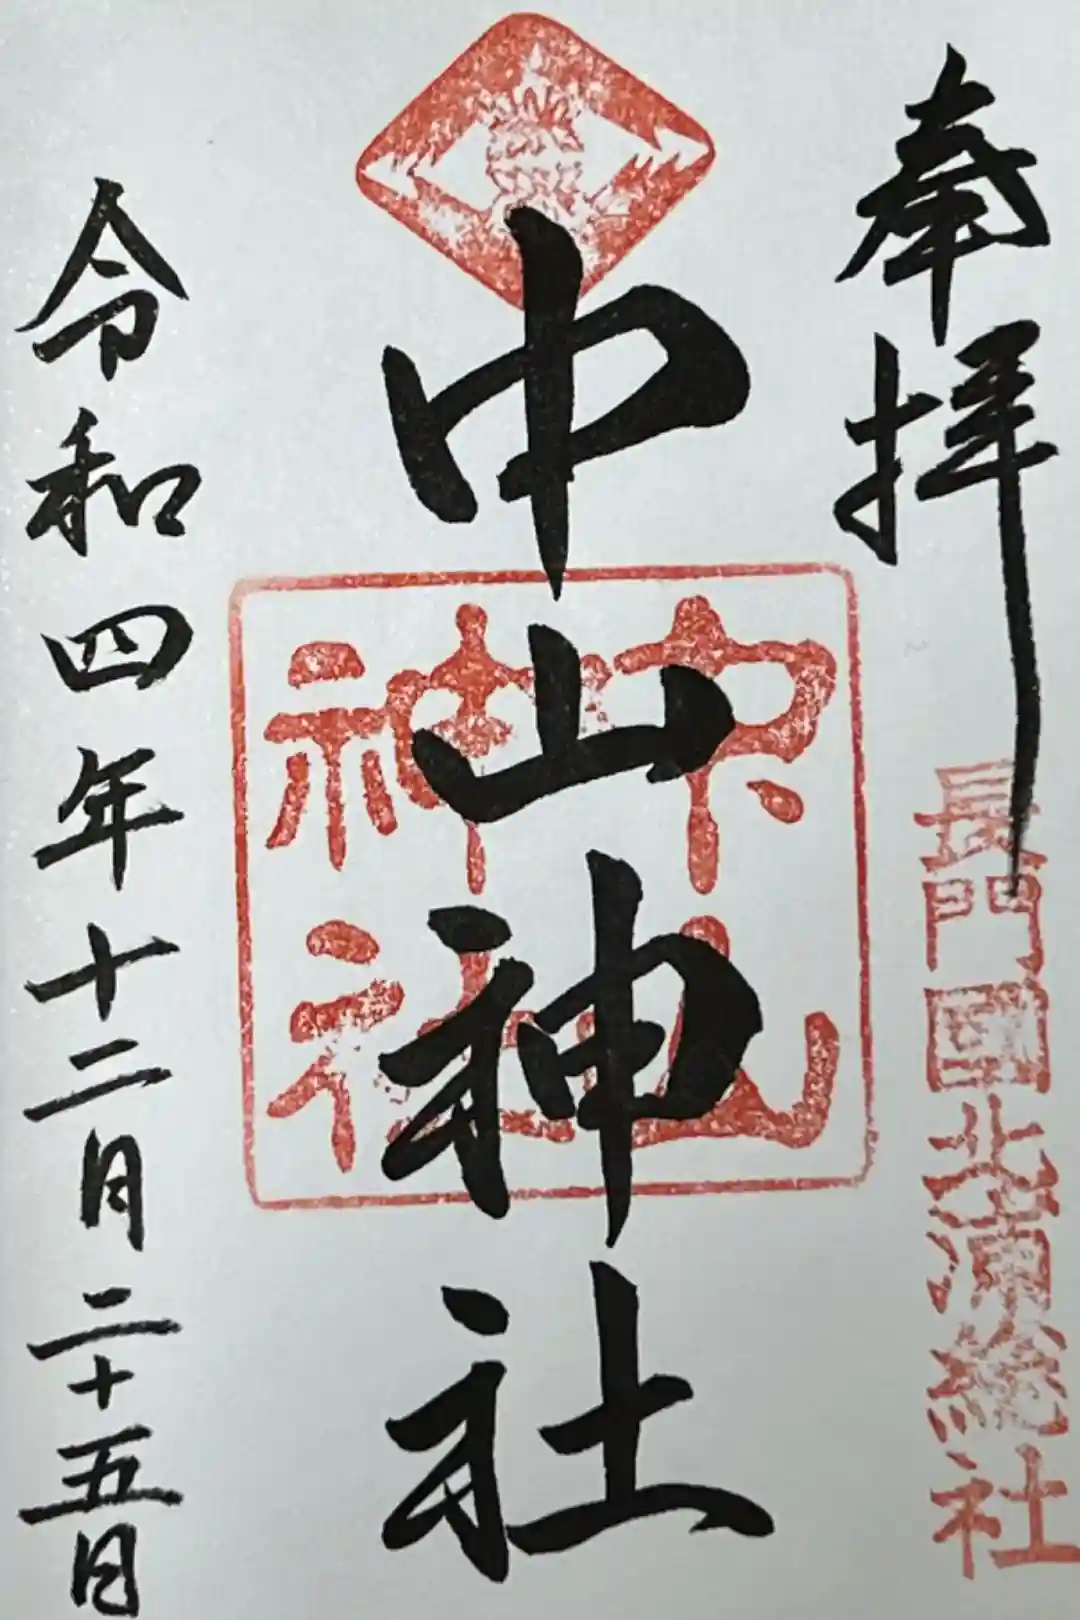 奉拝
長門国北浦総社
中山神社
中山神社
令和四年十二月二十五日